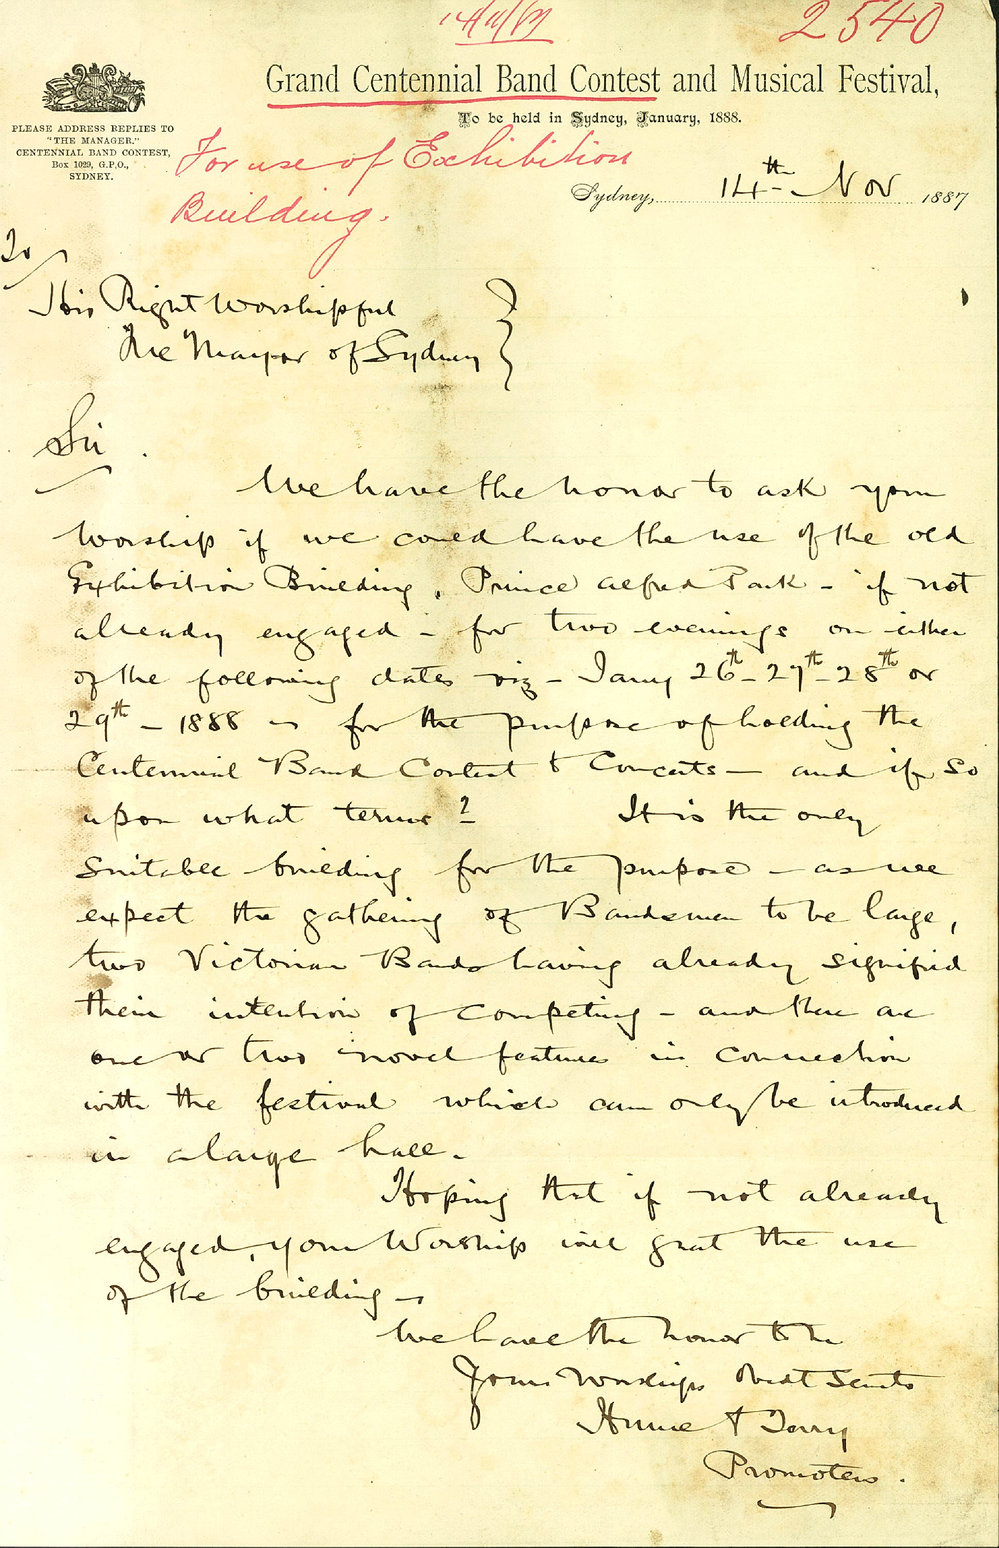 14/11/87
2540
Grand Centennial Band Contest and Musical Festival,
To be held in Sydney, January, 1888.
PLEASE ADDRESS REPLIES TO
"THE MANAGER."
CENTENNIAL BAND CONTEST,
Box 1029, G.P.O.,
SYDNEY.
For use of Exhibition
Building.
Sydney, 14th Nov 1887
To
His Right Worshipful
The Mayor of Sydney
Sir.
We have the honor to ask your
Worship if we could have the use of the old
Exhibition Building, Prince Alfred Park - if not
already engaged - for two evenings on either
of the following dates viz - Jany 26th - 27th - 28th or
29th - 1888 - for the purpose of holding the
Centennial Band Contest & Concerts - and if so
upon what terms? It is the only
suitable building for the purpose - as we
expect the gathering of Bandsmen to be large,
two Victorian Bands having already signified
their intention of competing - and there are
one or two novel features in connection
with the festival which can only be introduced
in a large hall.
Hoping that if not already
engaged, your Worship will grat the use
of the building -
We have the honor to be
Your Worships Obedt Servts
Hume & Terry
Promoters.